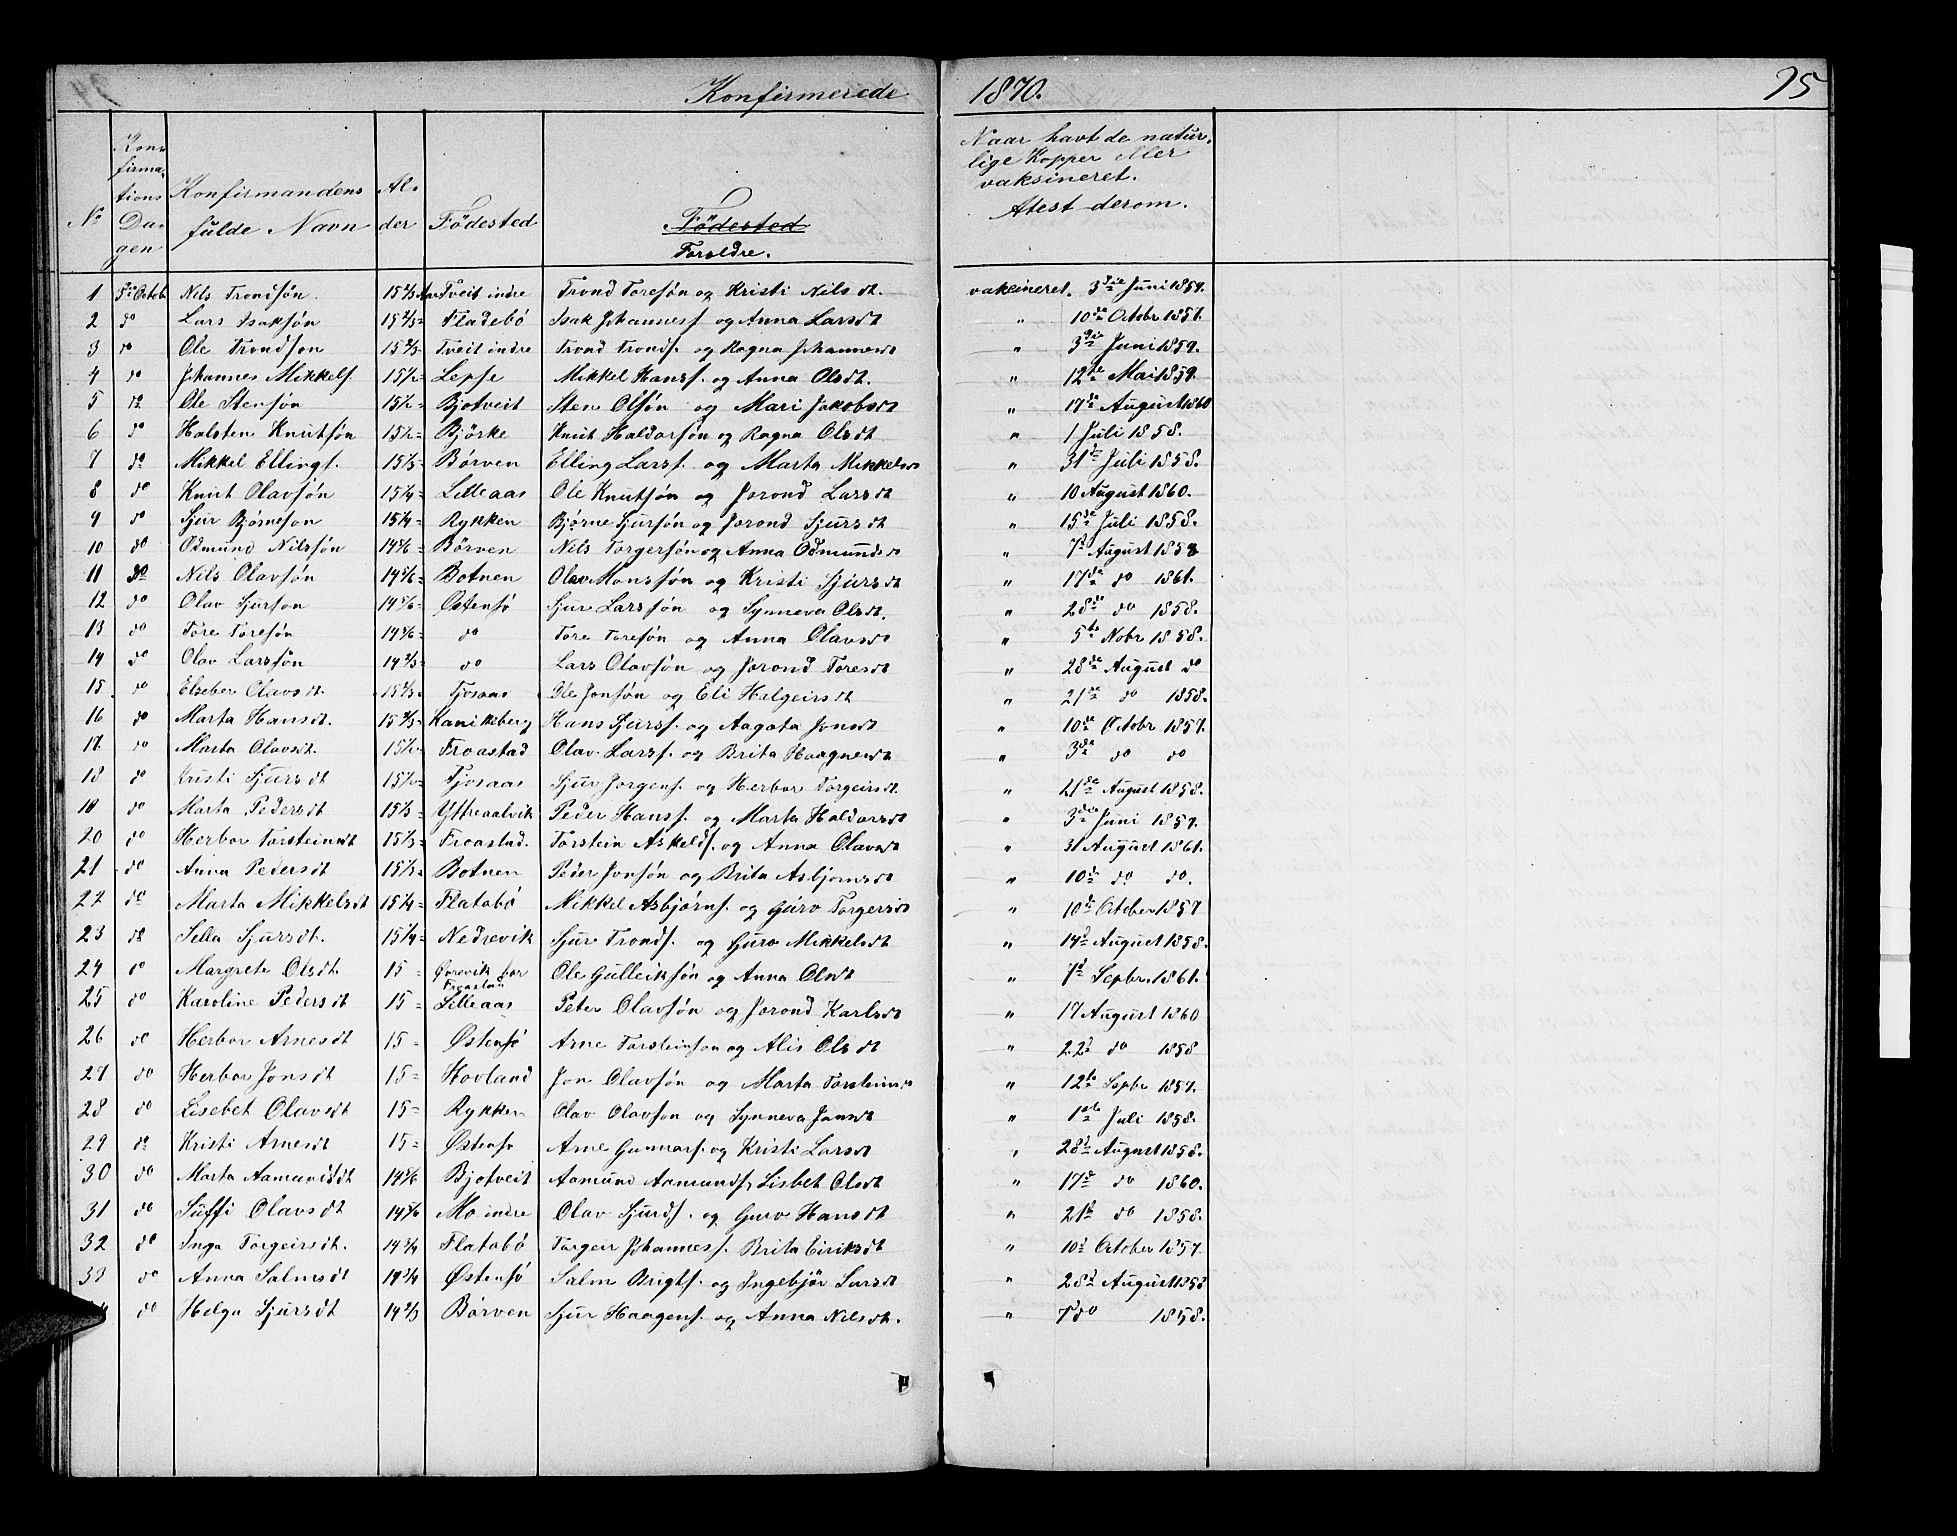 Konfirmerede 1870. 75
No Kon- firma- tions Da- gen Konfirmandens fulde Navn Al- der Födested Födested Foreldre. Naar havt de natur- lige Kopper eller vaksineret. Atest derom.
1 Octob Nils Trondsön. Tveit indre Trond Toresön og Kristi Nilsdt. vaksineret. 3die Juni 1859.
2 do Lars Isaksön Fladebö Isak Johannesf. og Anna Larsdt " 10de Octobr 1857.
3 do Ole Trondson Tveit indre Trond Tronds. og Ragna Johannesdt " 3die Juni 1859.
4 do Johannes Mikkels. 15½ Lepse Mikkel Hansf. og Anna Olsdt. " 12te Mai 1859.
5 do Ole Stensön 15½ Bjotveit Sten Olsön og Mari Jakobsdt " 17de August 1860
6 do Halsten Knutsön 15½ Björke Knut Haldorsön og Ragna Olsdt " 1 Juli 1858.
7 do Mikkel Ellingf. 15⅓ Börven Elling Larsf. og Marta Mikkelsdt " 31te Juli 1858.
8 do Knut Olavsön 15¼ Lilleaas Ole Knutsön og Jorond Larsdt " 10 August 1860.
9 do Sjur Bjørneson 15¼ Rykken Bjørne Sjursön og Jorond Sjursdt " 15de Juli 1858.
10 do Odmund Nilssön 14 5/6 Börven Nils Torgersön og Anna Odmundsdt " 7d August 1858
11 do Nils Olavsön 14 5/6 Botnen Olav Monssön og Kristi Sjursdt " 17de do 1861.
12 do Olav Sjurson 14 5/6 Ostensö Sjur Larssön og Synneva Olsdt. " 28de do 1858.
13 do Tore Toresön 14 5/6 do Tore Toresön og Anna Olavsdt " 5te Nobr 1858.
14 do Olav Larssön 14 2/3 do Lars Olavsön og Jorond Toresdt " 28de August do
15 do Elseber Olavsdt. Tjosaas Ole Jonsön og Eli Helgeirsdt " 21de do 1858.
16 do Marta Hansdt. Kanikeberg Hans Sjursf. og Aagata Jonsdt " 10de Octobr 1857.
17. do Marta Olavsdt. 15½ Froastad Olav Larsf. og Brita Haagnesdt " 3de do do
18 do Kristi Sjursdt 15½ Tjosaas Sjur Jorgenf. og Herbor Torgeirsdt " 21de August 1858.
18 do Marta Pedersdt 15⅓ Yttreaalvik Peder Hansf. og Marta Haldorsdt " 3die Juni 1857.
20 do Herbor Torsteinsdt 15⅓ Froastad. Torstein Askeldf. og Anna Olavsdt " 31 August 1861.
21 do Anna Pedersdt 15⅓ Botnen Peder Jonsön og Brita Asbjornsdt " 10de do do.
22 do Marta Mikkelsdt 15¼ Flatabö Mikkel Asbjørnf. og Guro Torgersdt " 10de October 1857
23 do Sella Sjursdt. 15¼ Nedrevik Sjur Trondf. og Guro Mikkelsdt " 14d August 1858.
24 do Margrete Olsdt. 15 Övrevik bor Froastad Ole Gulleiksön og Anna Olsdt " 7d Sepbr. 1861.
25 do Karoline Pedersdt 15 Lilleaas Peter Olavsön og Jorond Karlsdt " 17 August 1860
26 do Herbor Arnesdt 15 Østensö Arne Torsteinson og Alis Olsdt " 22d do 1858
27 do Herbor Jonsdt 15 Hovland Jon Olavsön og Marta Torsteinsdt " 12te Sepbr 1857.
28 do Lisebet Olavsdt 15 Rykken Olav Olavson og Synneva Jonsdt " 1ste Juli 1858.
29 do Kristi Arnesdt 15 Østensö Arne Gunnarf. og Kristi Larsdt " 28d August 1858.
30 do Marta Aamundsdt 14 5/6 Bjotveit Aamund Aamundsf. Lisbet Olsdt " 17de do 1860.
31 do Suffi Olavsdt 14 5/6 Mo indre Olav Sjurdf. og Guro Hansdt " 21d do 1858.
32 do Inga Torgeirsdt. 14¾ Flatabö Torgeir Johannesf. Brita Eiriksdt " 10d October 1857.
33 do Anna Salmsdt 14¾ Østensö Salm Brigtf. og Ingebjör Larsdt " 28d August 1858
do Helga Sjursdt 14⅔ Börven Sjur Haagensf. og Anna Nilsdt. " 7d do 1858.